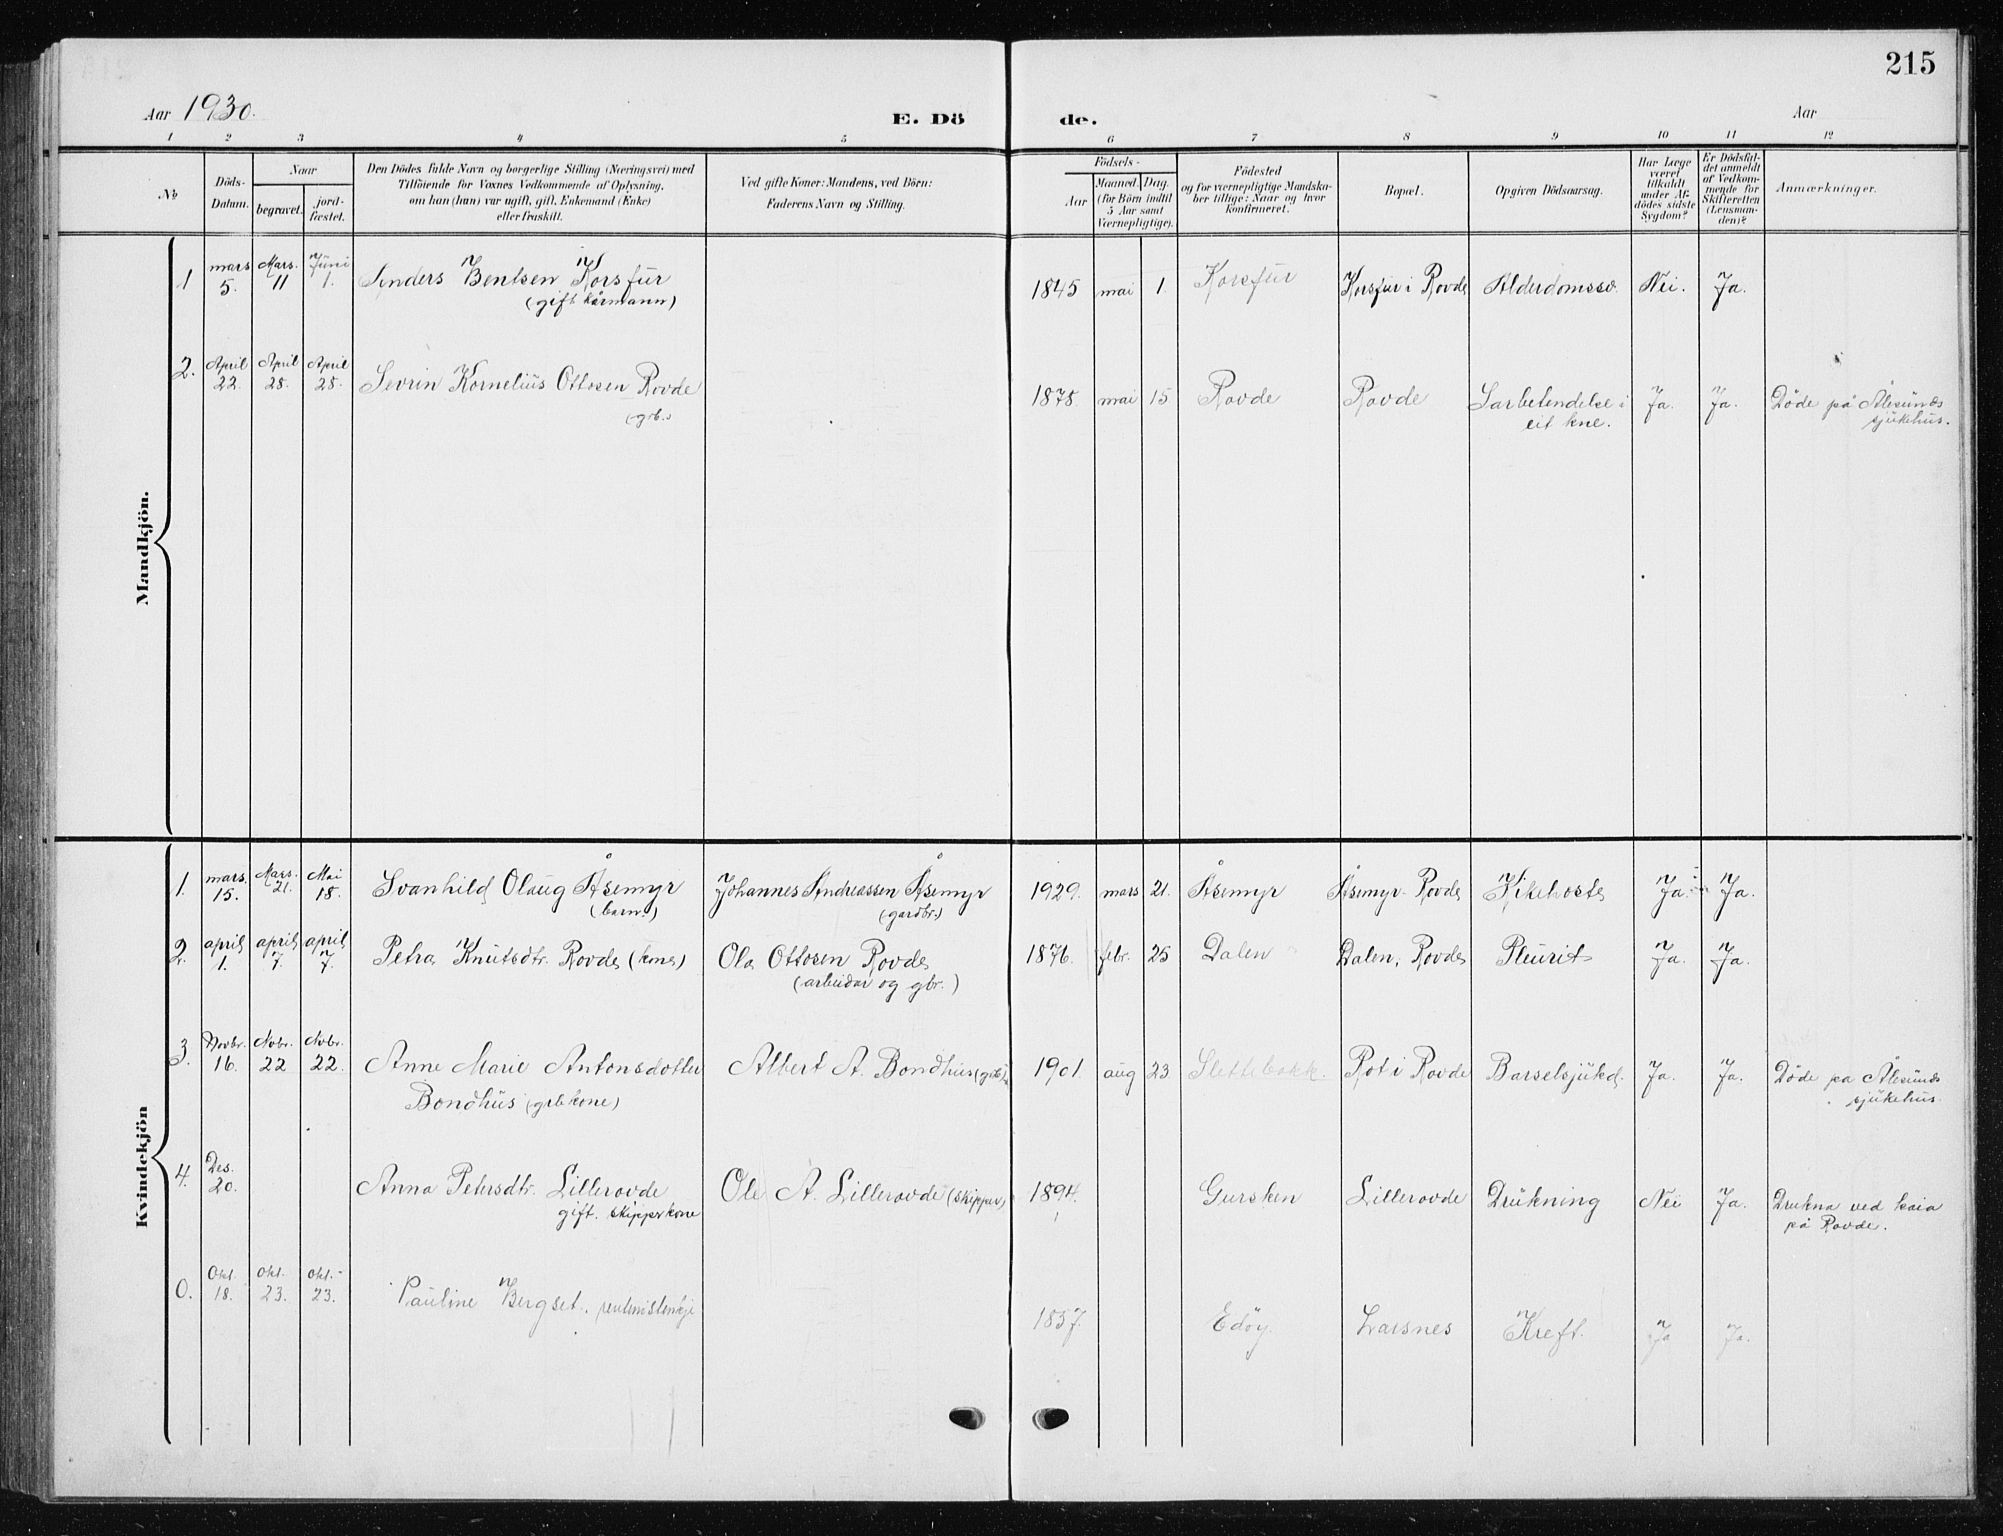 215
Aar 1930. E. Dö de. Aar
1 2 3 4 5 6 7 8 9 10 11 12
No.
Döds-
Datum.
Naar
begravet.
jord-
fæstet.
Den Dödes fulde Navn og borgerlige Stilling (Næringsvei) med
Tilföiende for Voxnes Vedkommende af Oplysning,
om han (hun) var ugift, gift, Enkemand (Enke)
eller fraskilt.
Ved gifte Koner: Mandens, ved Börn:
Faderens Navn og Stilling.
Födsels-
Aar
Maaned. Dag.
(for Börn indtil
5 Aar samt
Værnepligtige).
Födested
og for værnepligtige Mandska-
ber tillige: Naar og hvor
konfirmeret.
Bopæl.
Opgiven Dödsaarsag.
Har Læge
været
tilkaldt
under Af-
dödes sidste
Sygdom?
Er Dödsfal-
det anmeldt
af Vedkom-
mende for
Skifteretten
(Lensman-
den)?
Anmærkninger.
Mandkjön.
1 mars 5. Mars. 11 Juni 1. Anders Bentsen Korsfur 1845 mai 1. Korsfur Korsfur i Rovde Alderdomssv. Nei. Ja.
(gift kårmann)
2. April 22. April 28. April 28. Sevrin Kornelius Ottosen Rovde 1878. mai 15 Rovde Rovde Sarbetendelse i Ja. Ja. Döde på Ålesunds
(grb.) eit kne. sjukehus.
Kvindekjön
1. mars. 15. Mars. 21. Mai 18. Svanhild Olaug Åsemyr Johannes Andreassen Åsemyr 1929. mars 21. Åsemyr Åsemyr. Rovde Kikehoste Ja. Ja.
(barn.) (gardbr.)
2. april 1. april 7. april 7. Petra Knutsdtr. Rovde (kone) Ola Ottosen Rovde 1876. febr. 25 Dalen Dalen, Rovde Pleurit Ja. Ja.
(arbeidar og gbr.)
3. Novbr. 16. Nvbr. 22 Nvbr. 22. Anne Marie Antonsdotter Albert A. Bondhus 1901 aug 23 Slettebakk. Rot i Rovde Barselsjukd. Ja. Ja. Döde pa Ålesunds
Bondhus (grbkone) sjukehus.
4. Des. 20. Anna Petersdtr. Lillerovde Ole A. Lillerovde (skipper) 1894. Gursken Lillerovde Drukning Nei Ja. Drukna ved kaia
gift. skipperkone på Rovde.
0. Okt. 18. okt. 23. okt. 23. Pauline Bergset. 1857. Edöy. Larsnes Kreft. Ja Ja.